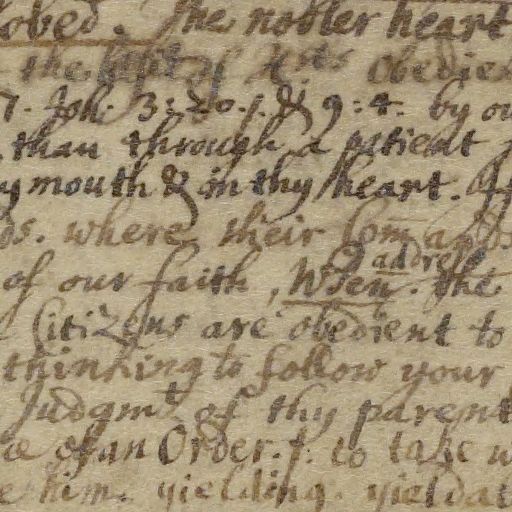 obed. The nobler heart
the of obedie
7. Joh. 3: 20. f. & 9: 4. by ou
than through a patient
y mouth & in thy heart. If
ds. where their Com̄ands
address
of our faith, When. the
Citizens are obedient to
thinking to follow your
Judgmt of thy parent
ce of an Order. f. to take w
e him. yielding. yieldat